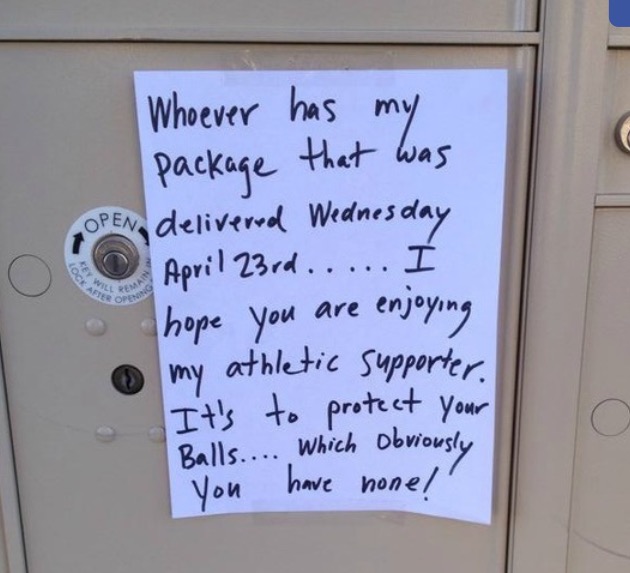 Whoever has my
package that was
delivered Wednesday
April 23rd..... I
hope you are enjoying
my athletic supporter.
It's to protect your
Balls.... which obviously
You have none!
OPEN
KEY WILL REMAIN IN
LOCK AFTER OPENING